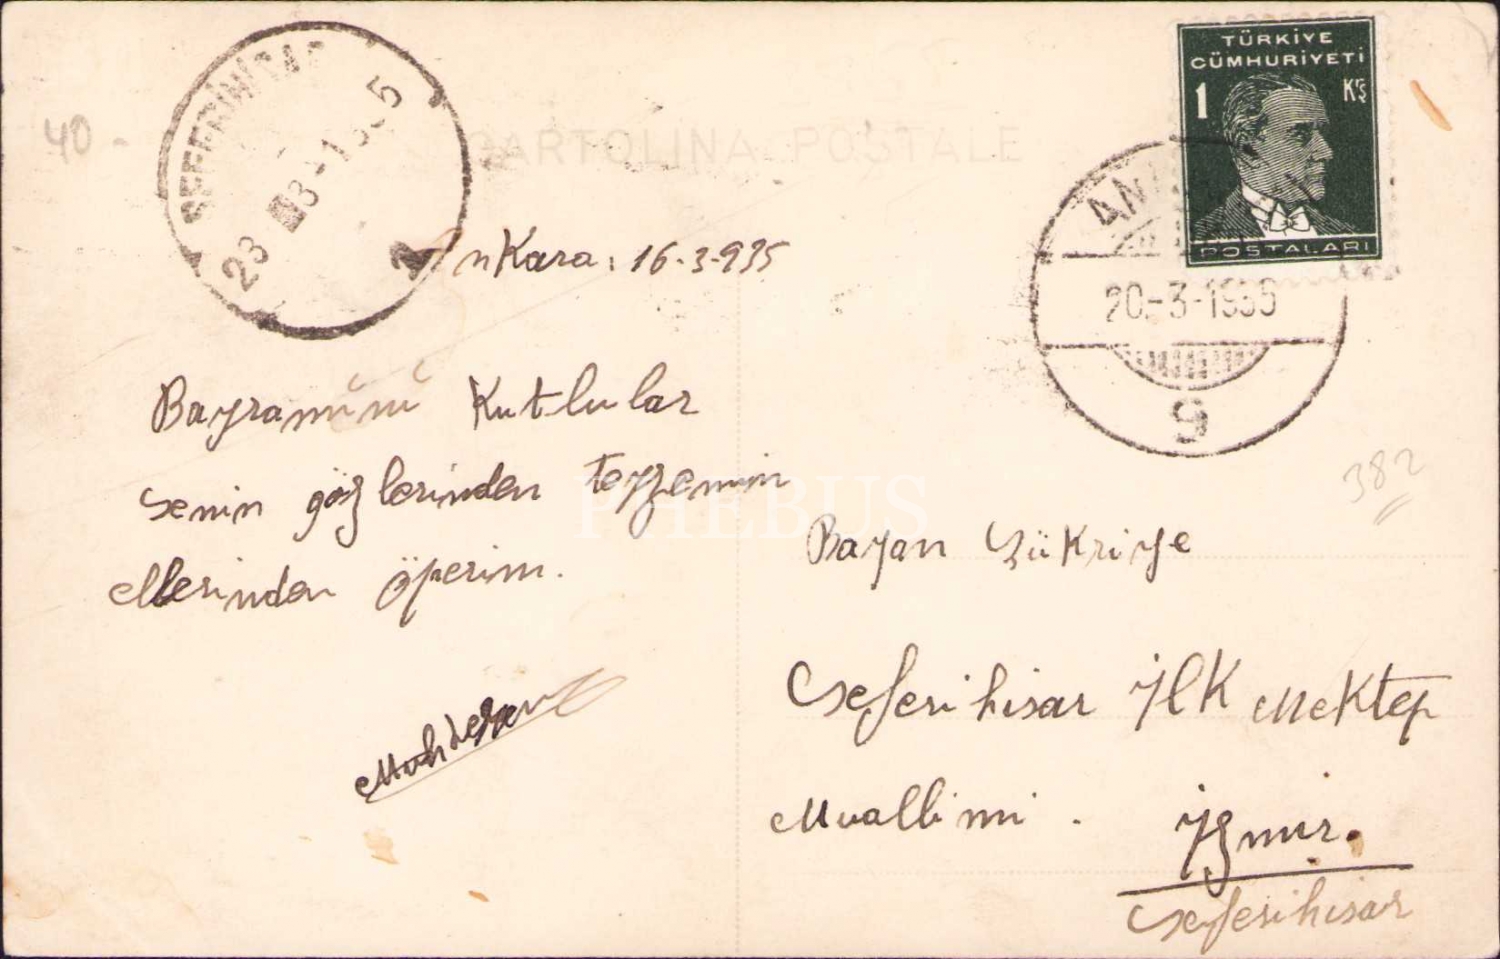 40 -
SEFERİHİSAR
23 3-1935
CARTOLINA POSTALE
TÜRKİYE
CÜMHURİYETİ
1 Krş
POSTALARI
20-3-1935
9
Ankara: 16-3-935
Bayramını Kutlular
senin gözlerinden teyzemin
ellerinden öperim.
382
PHEBUS
Bayan Şükriye
Seferihisar İlK MeKtep
Muallimi . İzmir.
Seferihisar